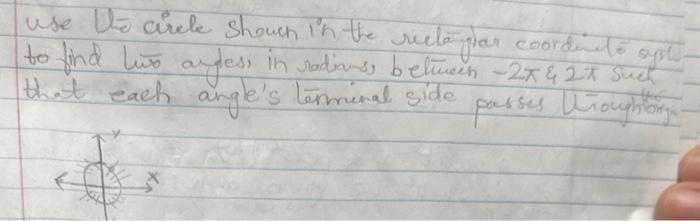 use the circle shown in the rectanglar coordinate syst
to find two angles, in radians, between -2π & 2π such
that each angle's terminal side passes through
y
x